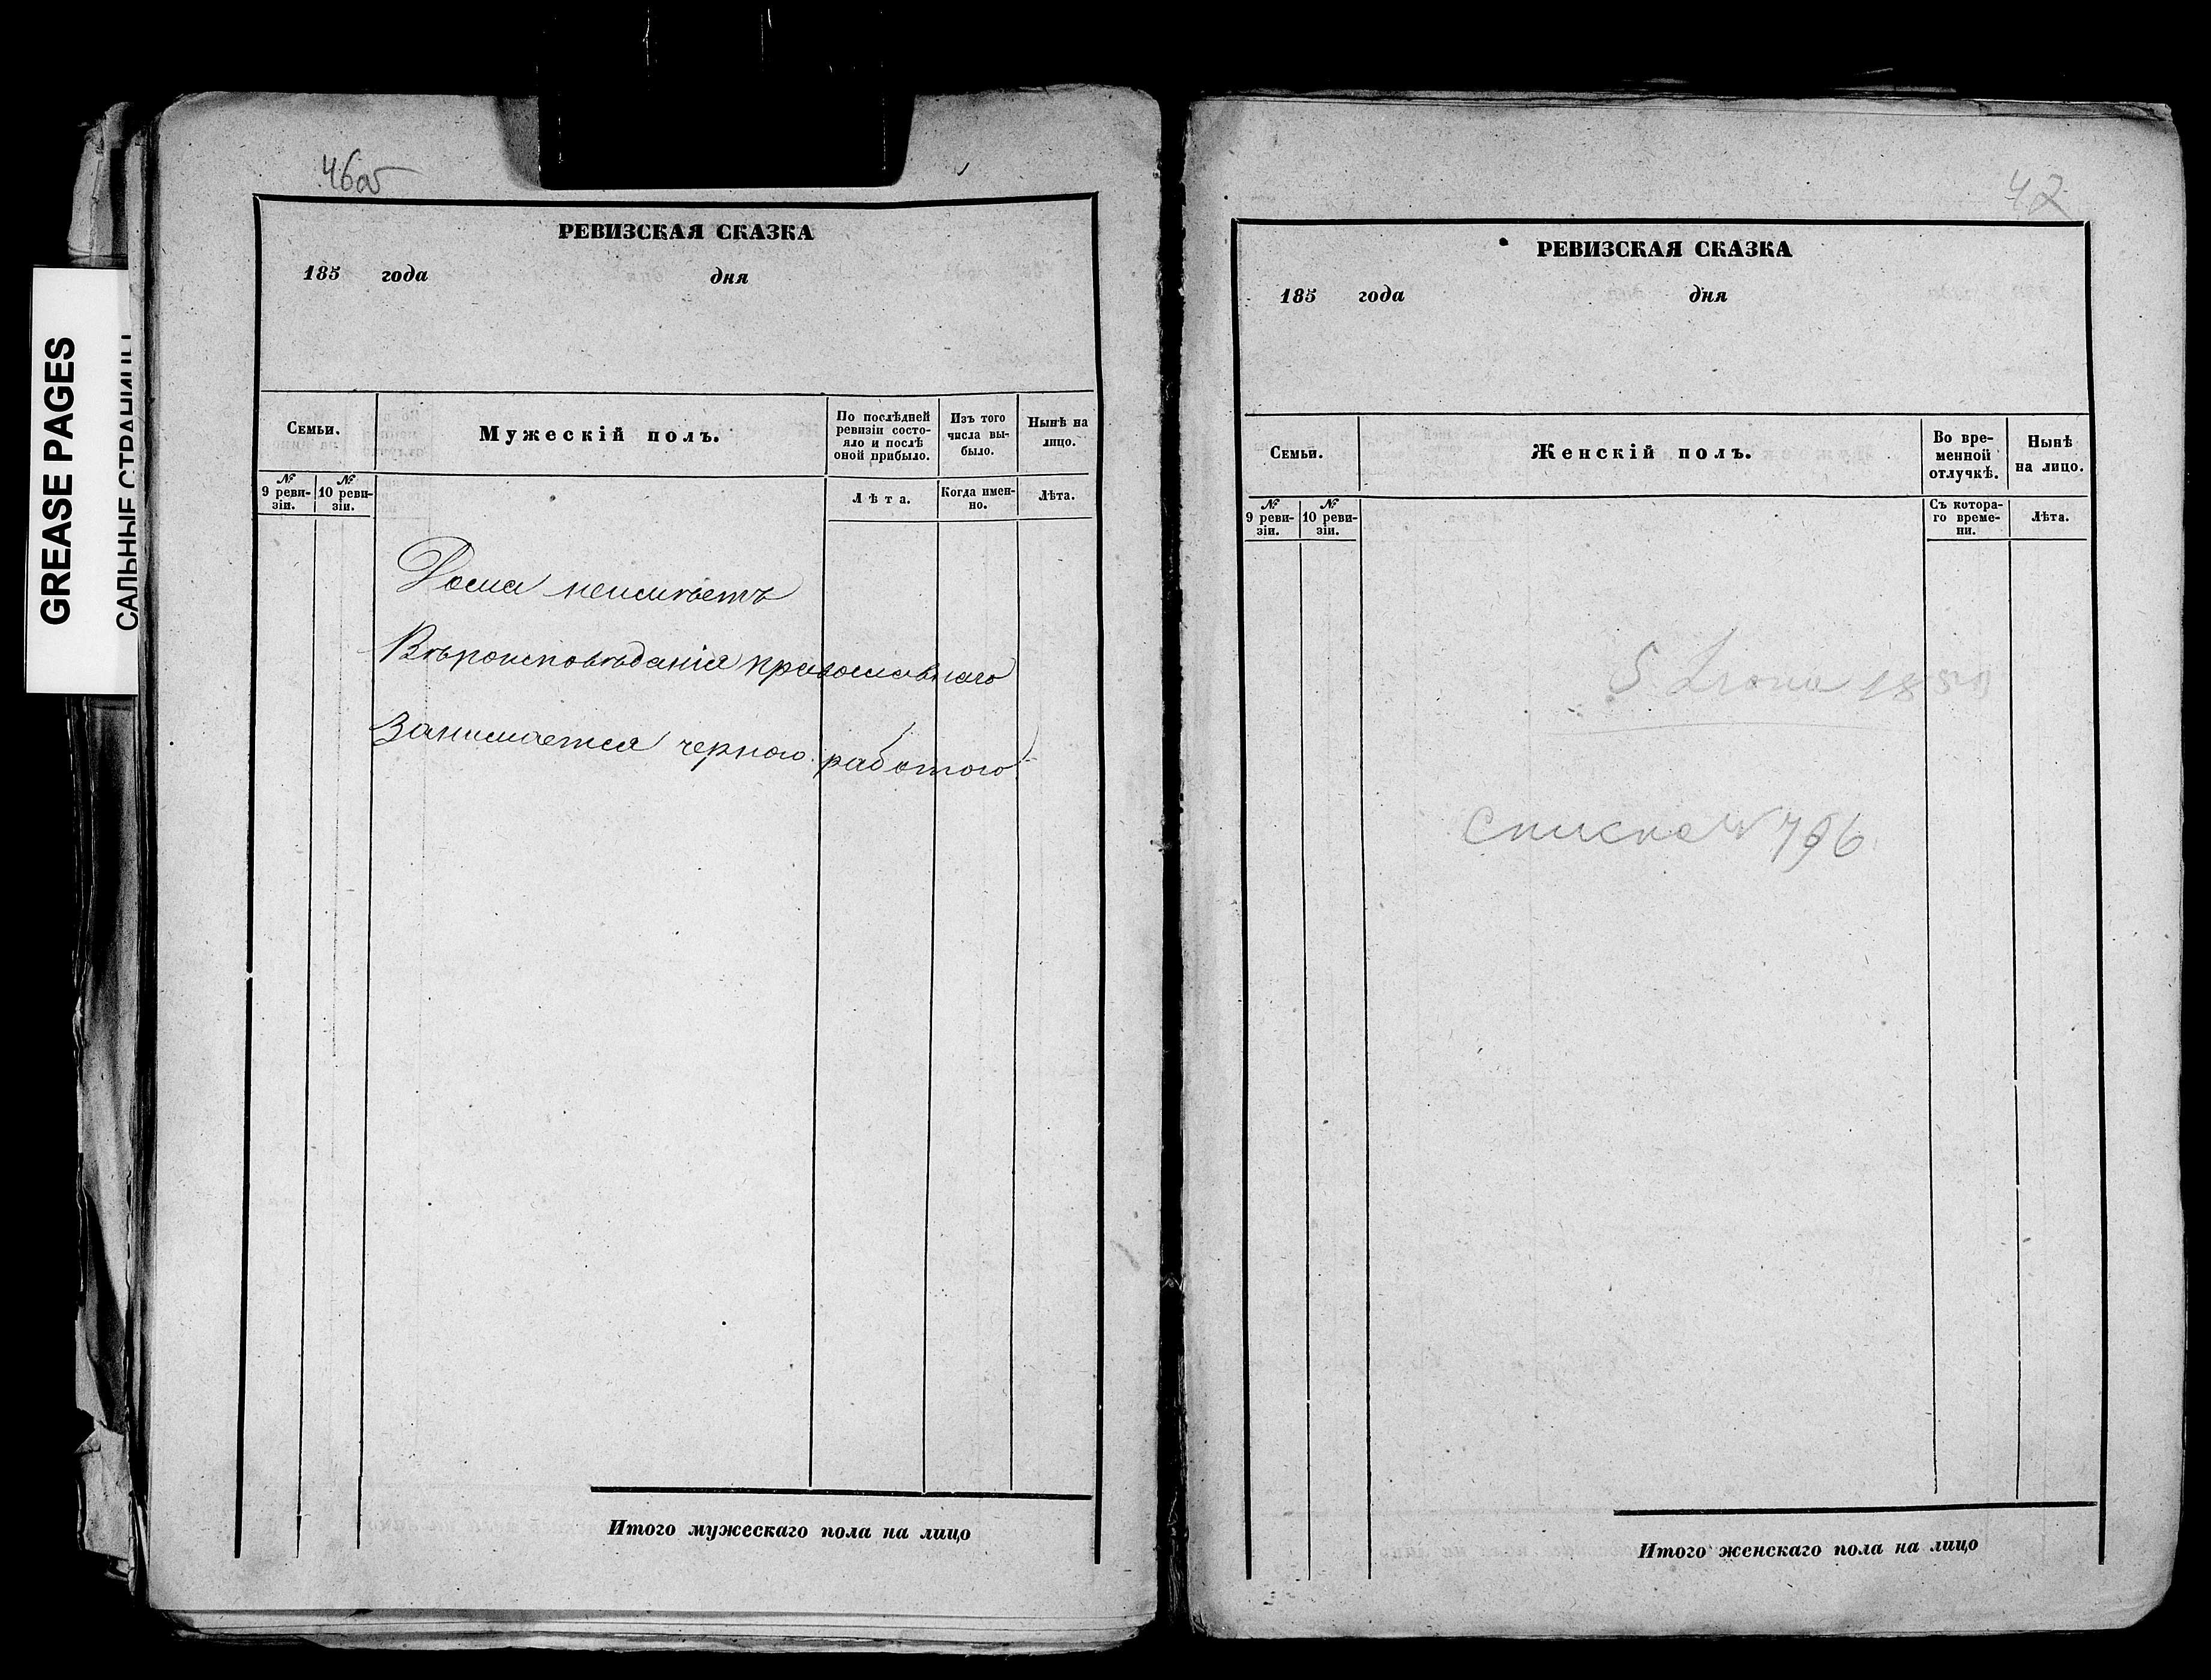 GREASE PAGES
САЛЬНЫЕ СТРАНИЦЫ
46об
РЕВИЗСКАЯ СКАЗКА
185 года дня
Семьи.
Мужескій полъ.
По послѣдней ревизіи состо-
яло и послѣ
оной прибыло.
Изъ того
числа вы-
было.
Нынѣ на
лицо.
№
9 реви-
зіи.
№
10 реви-
зіи.
Лѣта.
Когда имен-
но.
Лѣта.
Дома неимѣетъ
Вѣроисповѣданія православнаго
Занимается черною работою
Итого мужескаго пола на лицо
42
РЕВИЗСКАЯ СКАЗКА
185 года дня
Семьи.
Женскій полъ.
Во вре-
менной
отлучкѣ.
Нынѣ
на лицо.
№
9 реви-
зіи.
№
10 реви-
зіи.
Съ котора-
го време-
ни.
Лѣта.
5 185
списка № 796
Итого женскаго пола на лицо